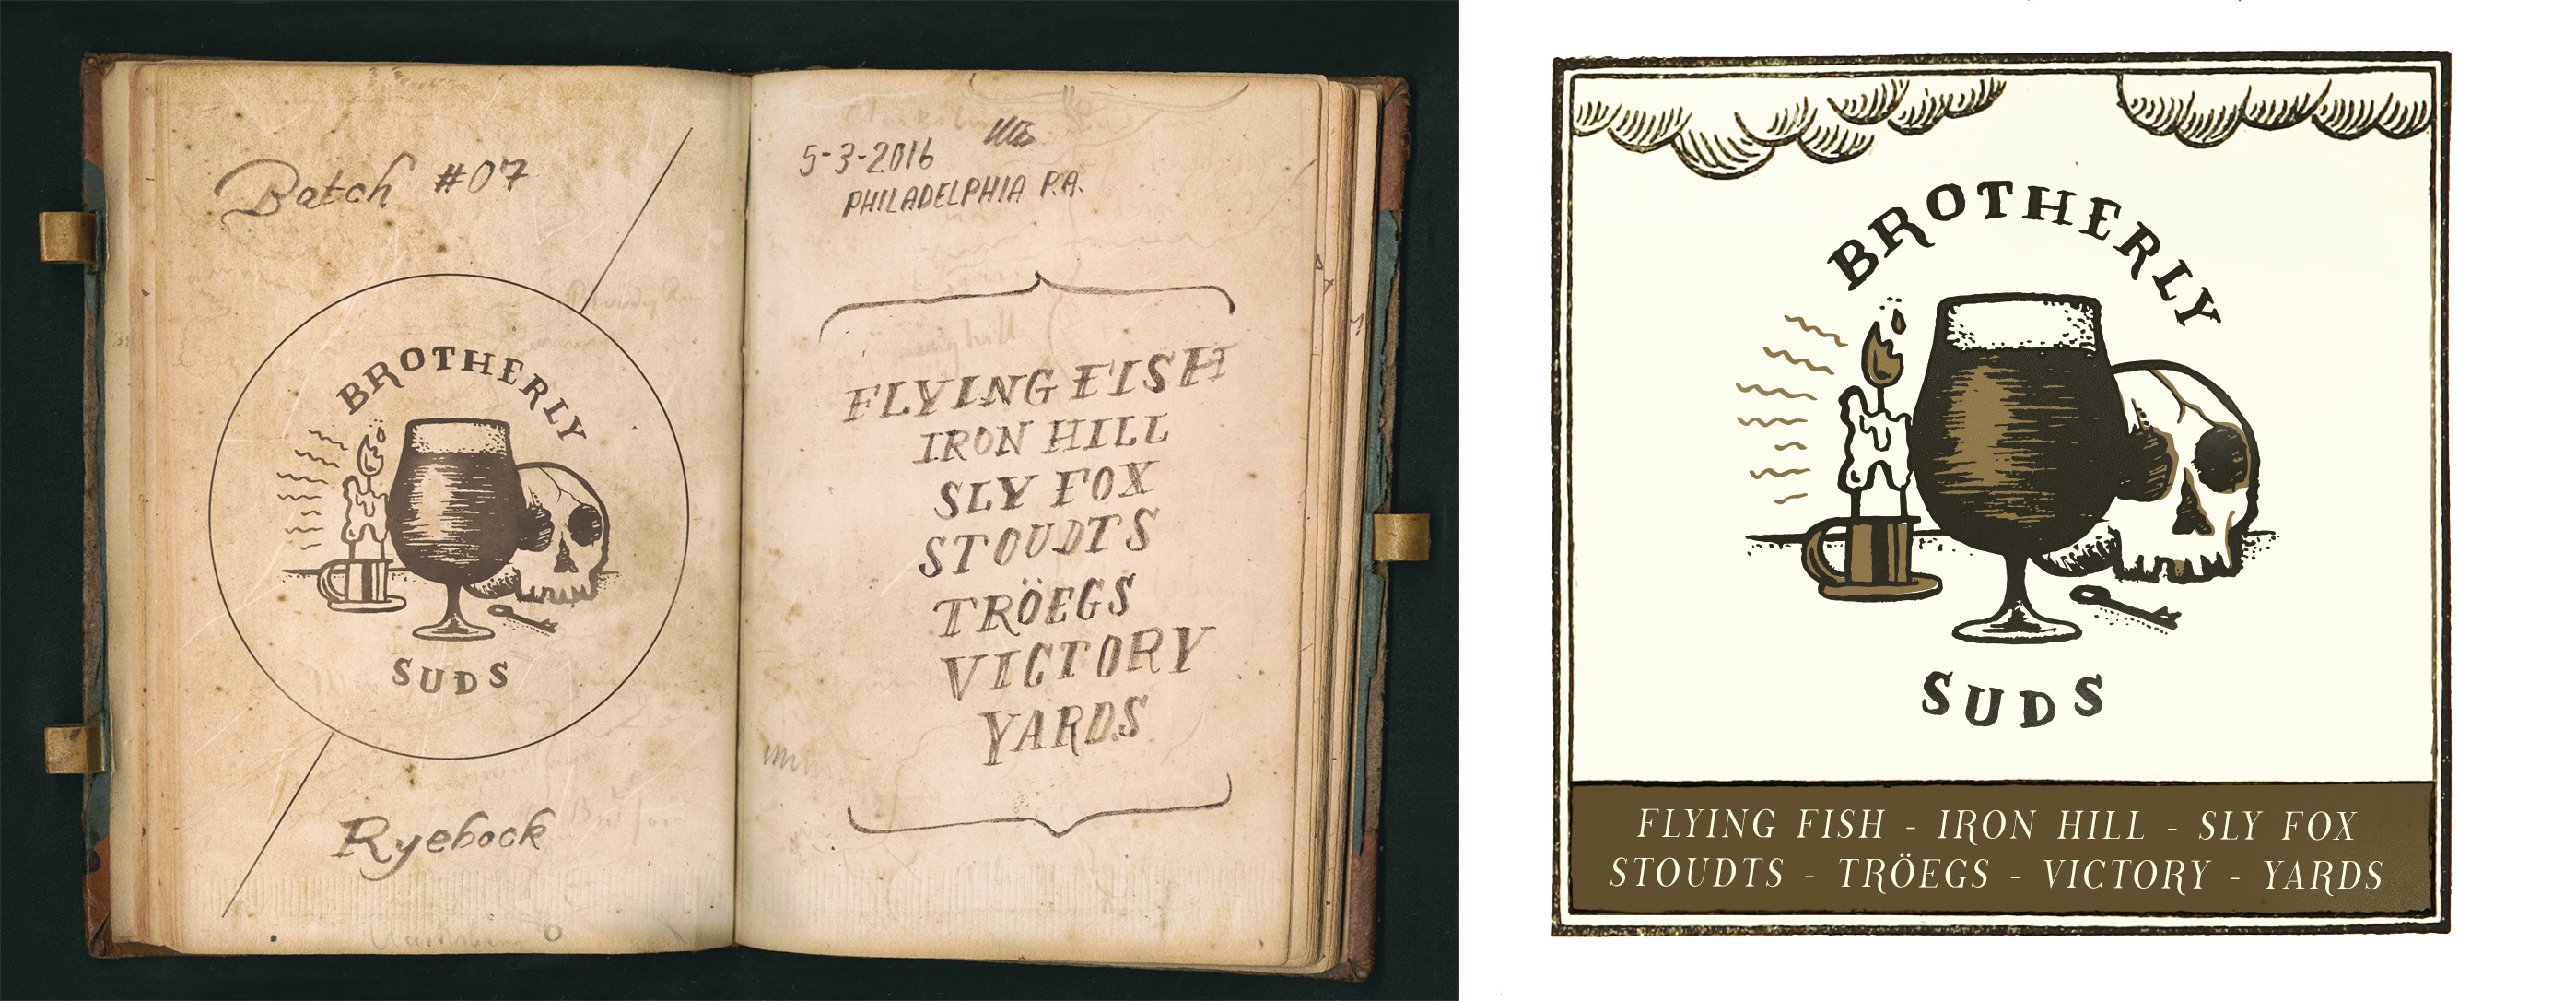 Batch #07
BROTHERLY
SUDS
Ryebock
5-3-2016
PHILADELPHIA P.A.
FLYING FISH
IRON HILL
SLY FOX
STOUDTS
TRÖEGS
VICTORY
YARDS
BROTHERLY
SUDS
FLYING FISH - IRON HILL - SLY FOX
STOUDTS - TRÖEGS - VICTORY - YARDS